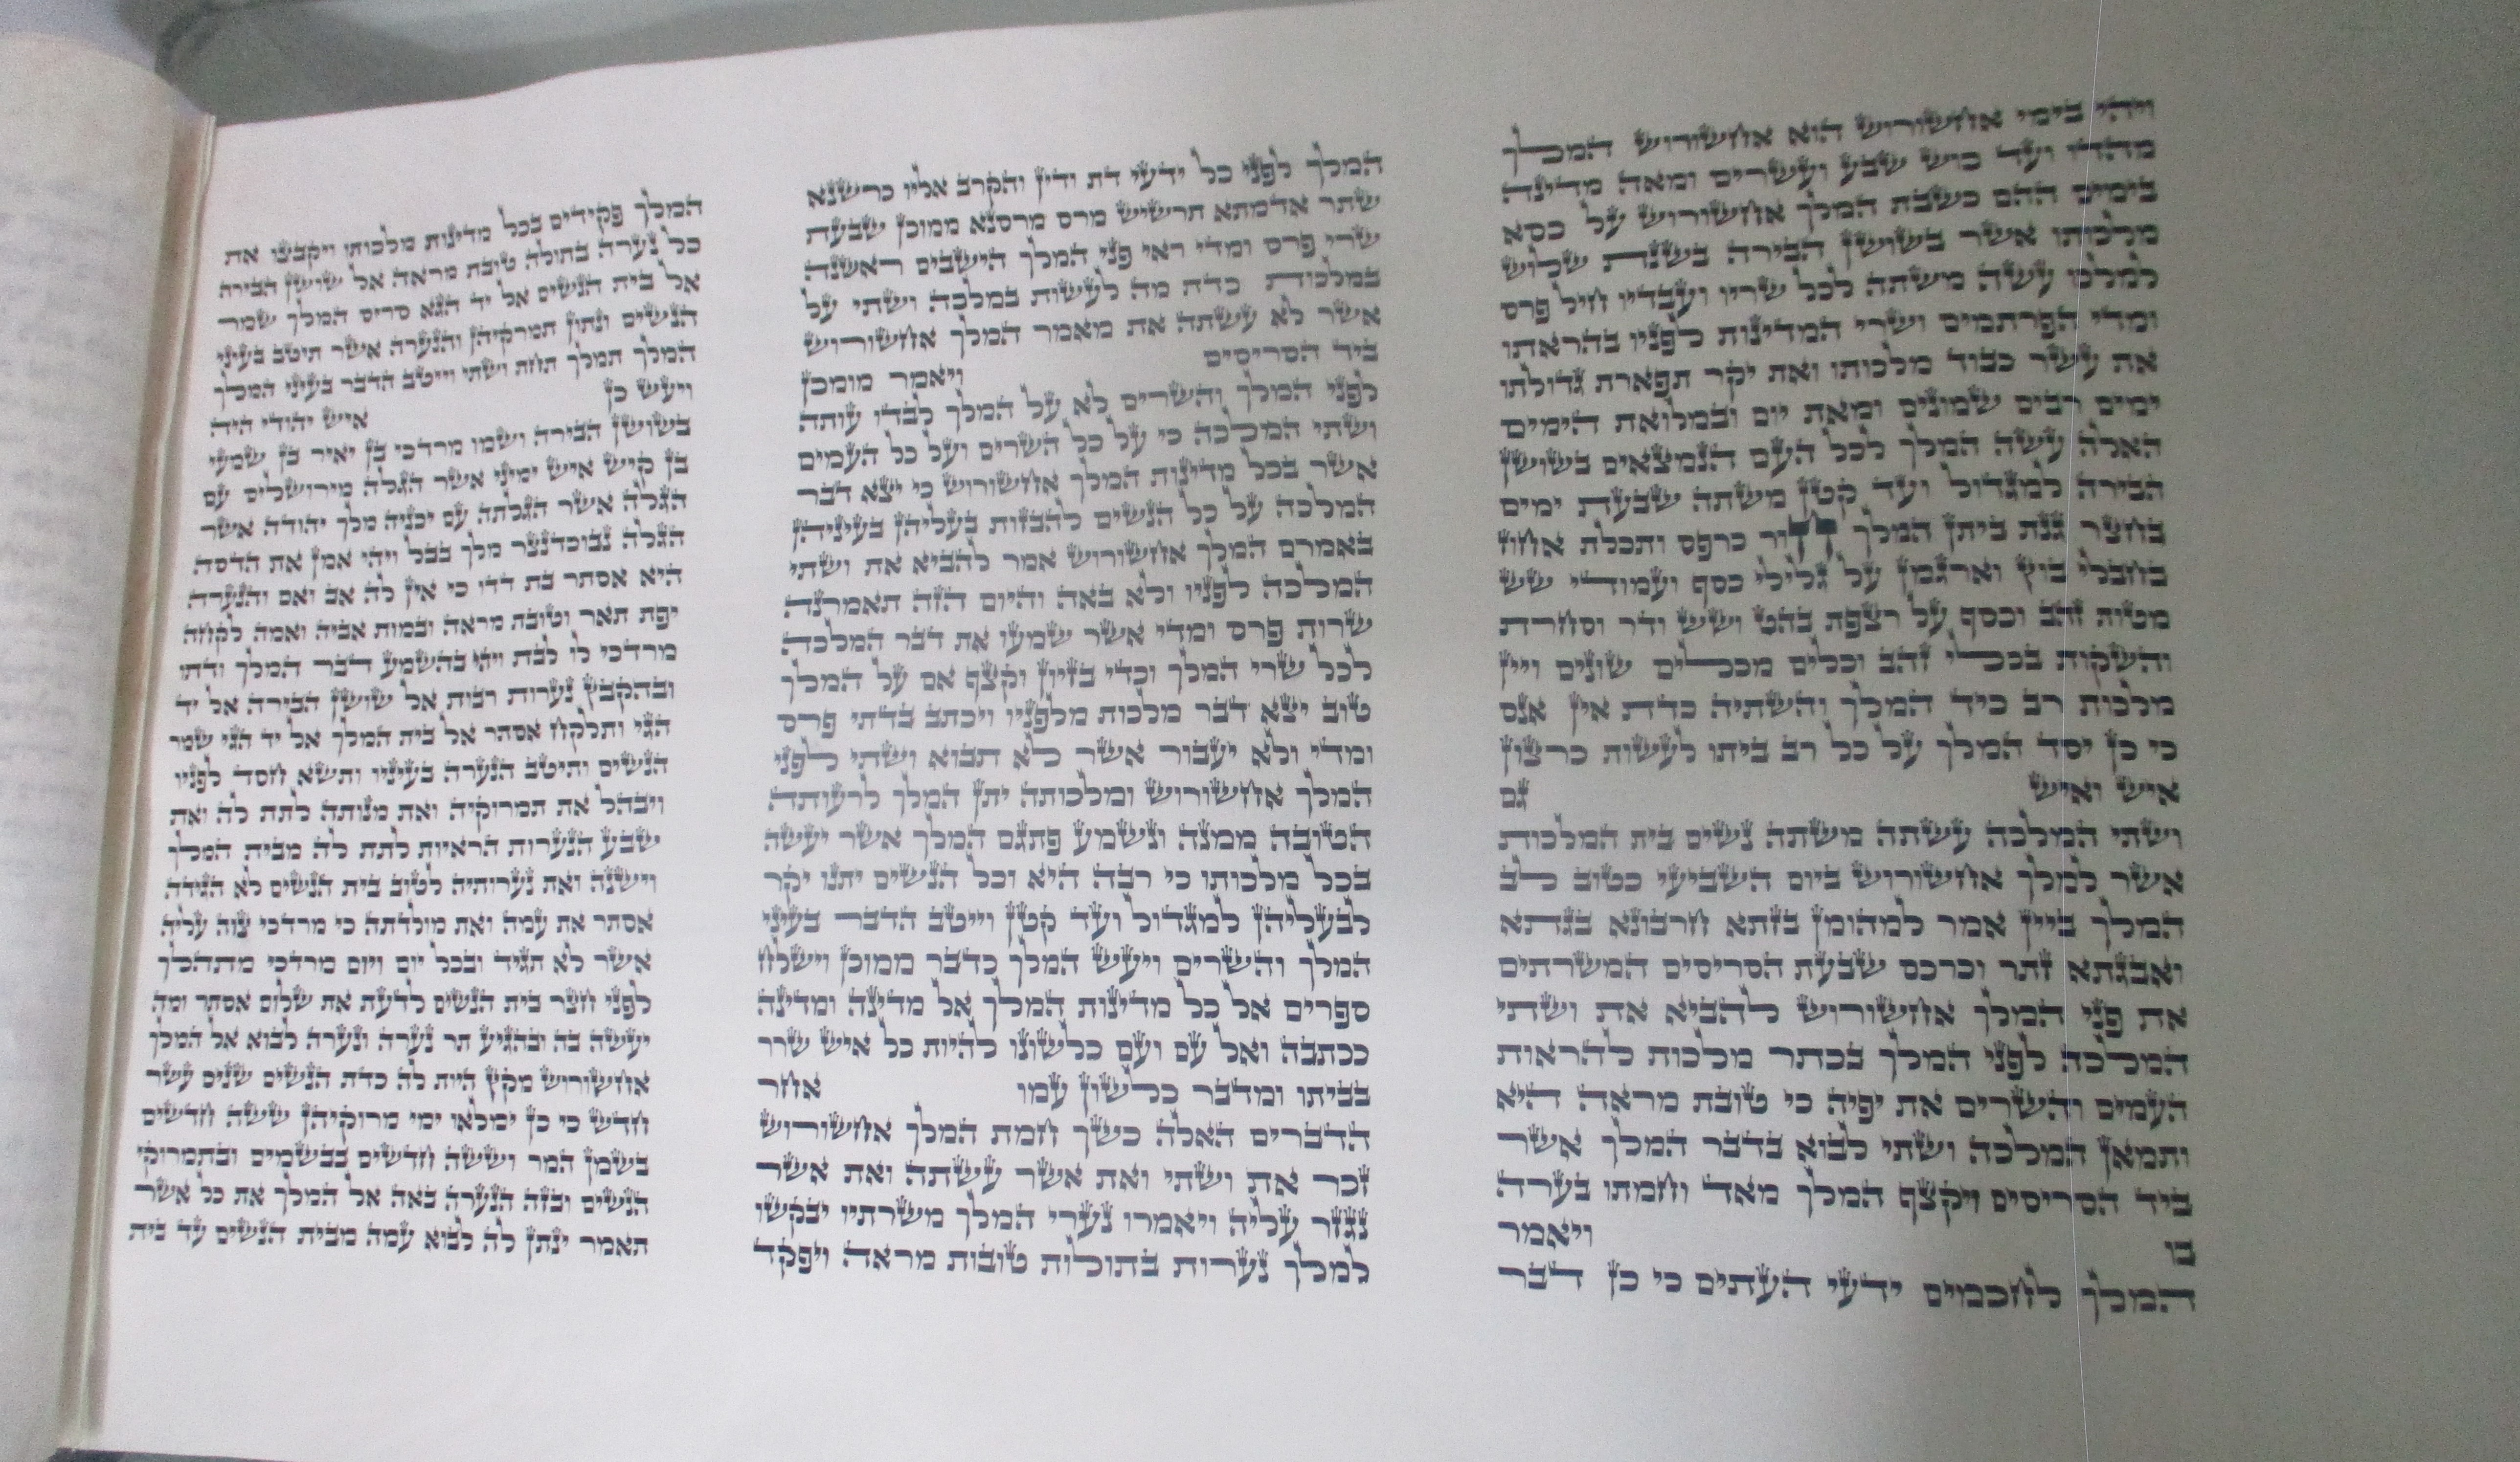 ויהי בימי אחשורוש הוא אחשורוש המלך
מהדו ועד כוש שבע ועשרים ומאה מדינה
בימים ההם כשבת המלך אחשורוש על כסא
מלכותו אשר בשושן הבירה בשנת שלוש
למלכו עשה משתה לכל שריו ועבדיו חיל פרס
ומדי הפרתמים ושרי המדינות לפניו בהראתו
את עשר כבוד מלכותו ואת יקר תפארת גדולתו
ימים רבים שמונים ומאת יום ובמלואת הימים
האלה עשה המלך לכל העם הנמצאים בשושן
הבירה למגדול ועד קטן משתה שבעת ימים
בחצר גנת ביתן המלך חור כרפס ותכלת אחוז
בחבלי בוץ וארגמן על גלילי כסף ועמודי שש
מטות זהב וכסף על רצפת בהט ושש ודר וסחרת
והשקות בכלי זהב וכלים מכלים שונים ויין
מלכות רב כיד המלך והשתיה כדת אין אנס
כי כן יסד המלך על כל רב ביתו לעשות כרצון
איש ואיש גם
ושתי המלכה עשתה משתה נשים בית המלכות
אשר למלך אחשורוש ביום השביעי כטוב לב
המלך ביין אמר למהומן בזתא חרבונא בגתא
ואבגתא זתר וכרכס שבעת הסריסים המשרתים
את פני המלך אחשורוש להביא את ושתי
המלכה לפני המלך בכתר מלכות להראות
העמים והשרים את יפיה כי טובת מראה היא
ותמאן המלכה ושתי לבוא בדבר המלך אשר
ביד הסריסים ויקצף המלך מאד וחמתו בערה
בו ויאמר
המלך לחכמים ידעי העתים כי כן דבר
המלך לפני כל ידעי דת ודין והקרב אליו כרשנא
שתר אדמתא תרשיש מרס מרסנא ממוכן שבעת
שרי פרס ומדי ראי פני המלך הישבים ראשנה
במלכות כדת מה לעשות במלכה ושתי על
אשר לא עשתה את מאמר המלך אחשורוש
ביד הסריסים ויאמר מומכן
לפני המלך והשרים לא על המלך לבדו עותה
ושתי המלכה כי על כל השרים ועל כל העמים
אשר בכל מדינות המלך אחשורוש כי יצא דבר
המלכה על כל הנשים להבזות בעליהן בעיניהן
באמרם המלך אחשורוש אמר להביא את ושתי
המלכה לפניו ולא באה והיום הזה תאמרנה
שרות פרס ומדי אשר שמעו את דבר המלכה
לכל שרי המלך וכדי בזיון וקצף אם על המלך
טוב יצא דבר מלכות מלפניו ויכתב בדתי פרס
ומדי ולא יעבור אשר לא תבוא ושתי לפני
המלך אחשורוש ומלכותה יתן המלך לרעותה
הטובה ממנה ונשמע פתגם המלך אשר יעשה
בכל מלכותו כי רבה היא וכל הנשים יתנו יקר
לבעליהן למגדול ועד קטן וייטב הדבר בעיני
המלך והשרים ויעש המלך כדבר ממוכן וישלח
ספרים אל כל מדינות המלך אל מדינה ומדינה
ככתבה ואל עם ועם כלשונו להיות כל איש שרר
בביתו ומדבר כלשון עמו אחר
הדברים האלה כשך חמת המלך אחשורוש
זכר את ושתי ואת אשר עשתה ואת אשר
נגזר עליה ויאמרו נערי המלך משרתיו יבקשו
למלך נערות בתולות טובות מראה ויפקד
המלך פקידים בכל מדינות מלכותו ויקבצו את
כל נערה בתולה טובת מראה אל שושן הבירה
אל בית הנשים אל יד הגא סריס המלך שמר
הנשים ונתון תמרקיהן והנערה אשר תיטב בעיני
המלך תמלך תחת ושתי וייטב הדבר בעיני המלך
ויעש כן
איש יהודי היה
בשושן הבירה ושמו מרדכי בן יאיר בן שמעי
בן קיש איש ימיני אשר הגלה מירושלים עם
הגלה אשר הגלתה עם יכניה מלך יהודה אשר
הגלה נבוכדנצר מלך בבל ויהי אמן את הדסה
היא אסתר בת דדו כי אין לה אב ואם והנערה
יפת תאר וטובת מראה ובמות אביה ואמה לקחה
מרדכי לו לבת ויהי בהשמע דבר המלך ודתו
ובהקבץ נערות רבות אל שושן הבירה אל יד
הגי ותלקח אסתר אל בית המלך אל יד הגי שמר
הנשים ותיטב הנערה בעיניו ותשא חסד לפניו
ויבהל את תמרוקיה ואת מנותה לתת לה ואת
שבע הנערות הראיות לתת לה מבית המלך
וישנה ואת נערותיה לטוב בית הנשים לא הגידה
אסתר את עמה ואת מולדתה כי מרדכי צוה עליה
אשר לא תגיד ובכל יום ויום מרדכי מתהלך
לפני חצר בית הנשים לדעת את שלום אסתר ומה
יעשה בה ובהגיע תר נערה ונערה לבוא אל המלך
אחשורוש מקץ היות לה כדת הנשים שנים עשר
חדש כי כן ימלאו ימי מרוקיהן ששה חדשים
בשמן המר וששה חדשים בבשמים ובתמרוקי
הנשים ובזה הנערה באה אל המלך את כל אשר
תאמר ינתן לה לבוא עמה מבית הנשים עד בית